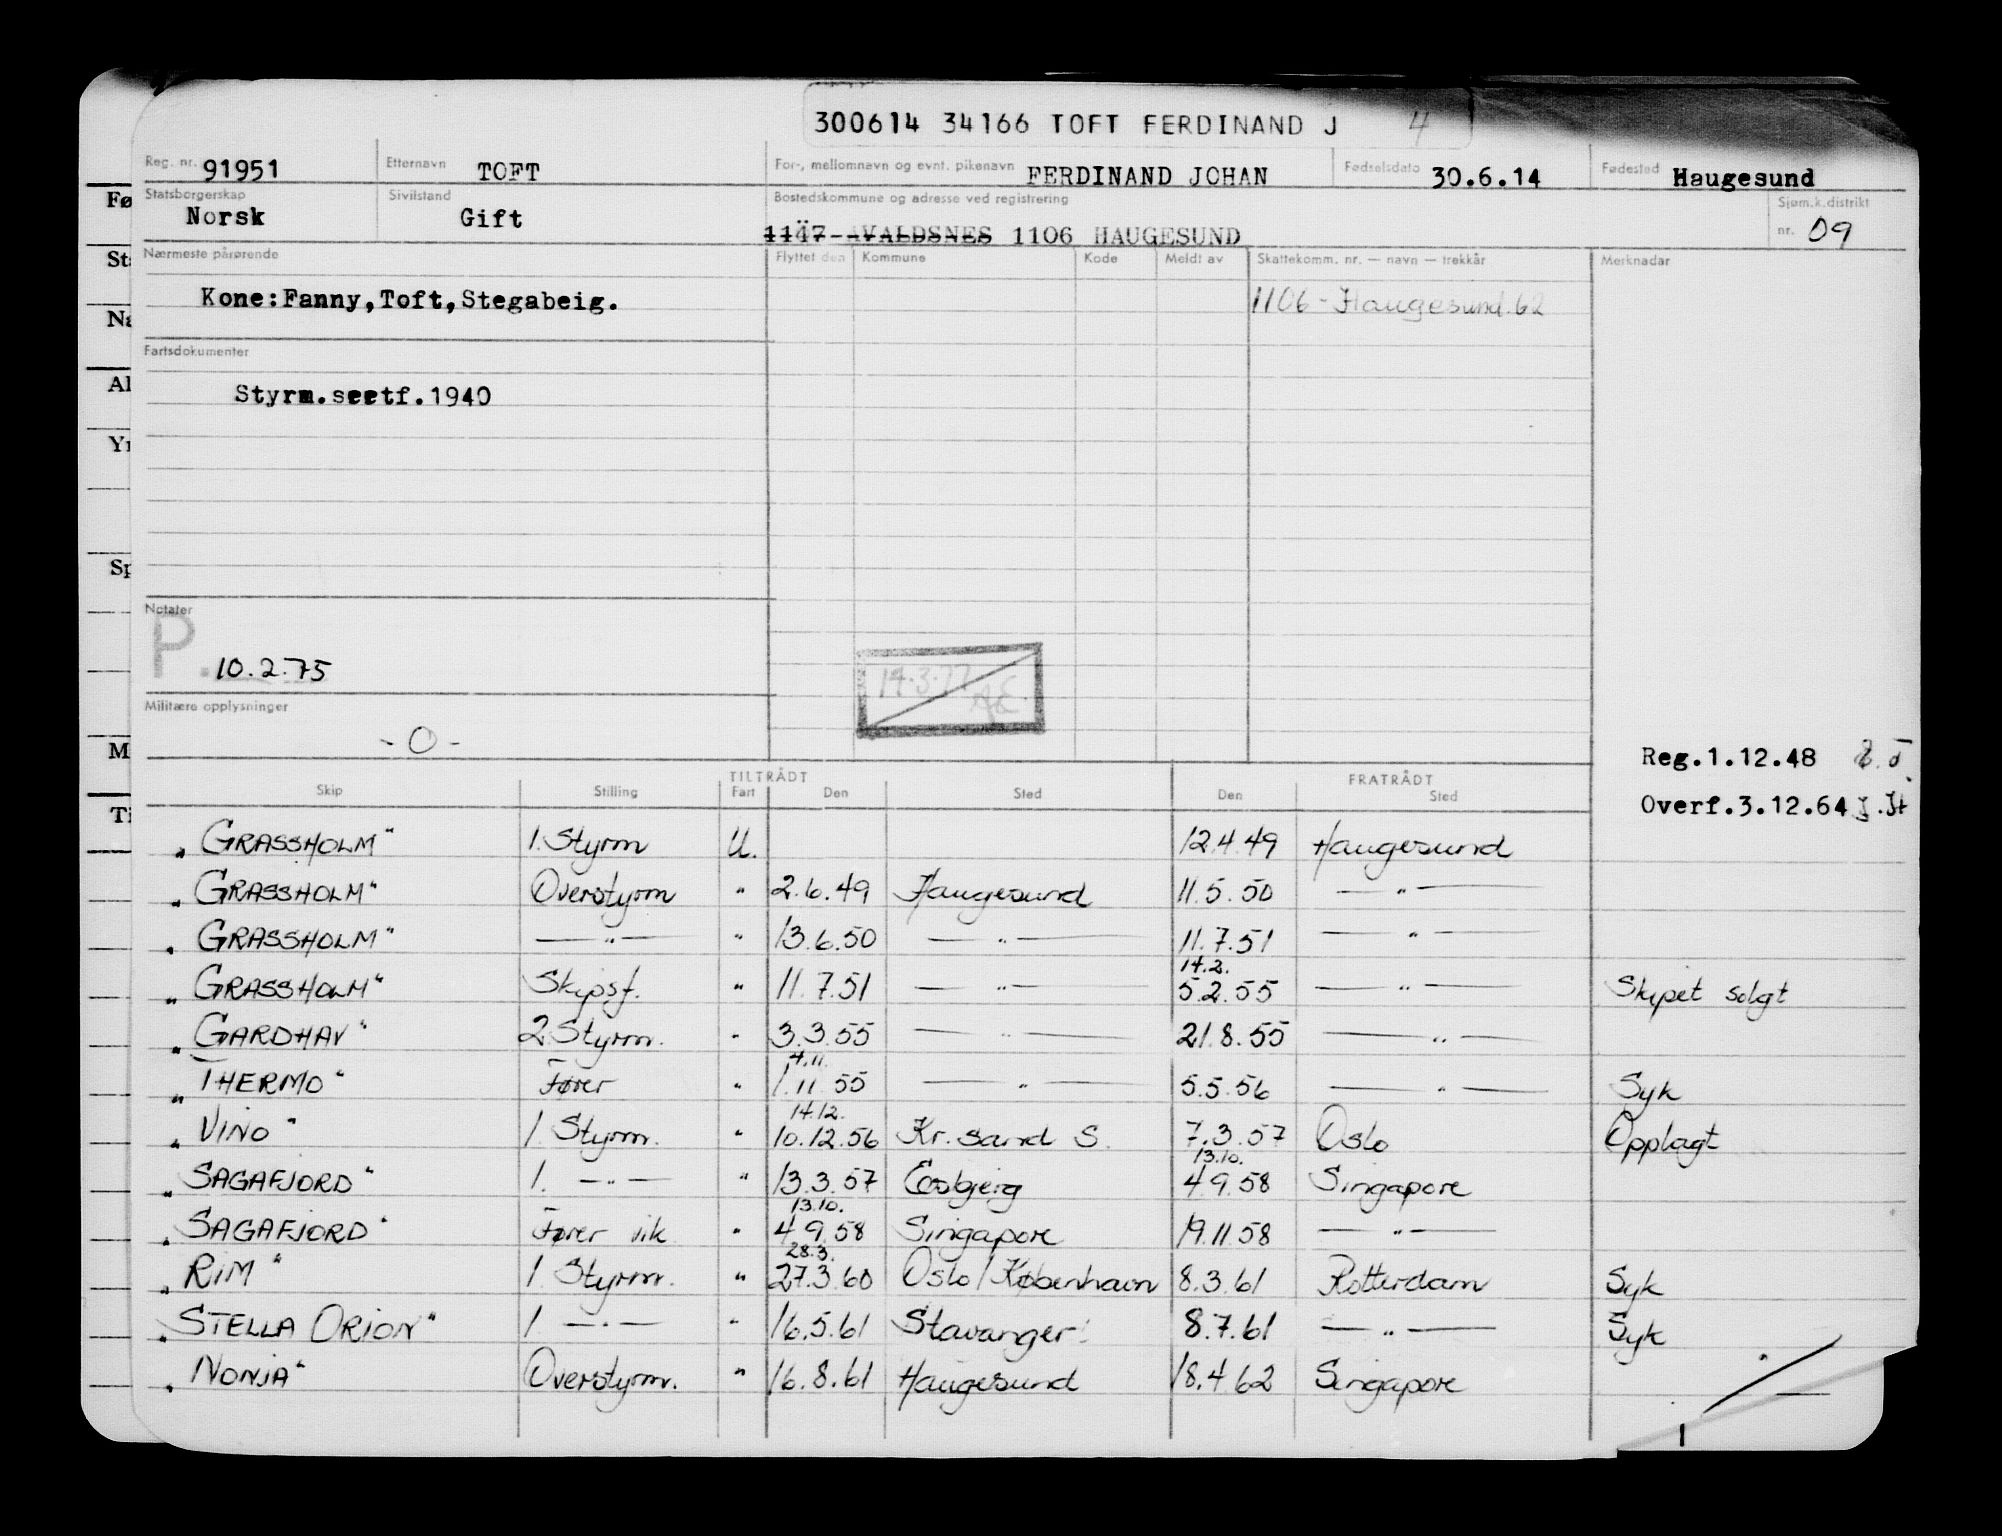 300614 34166 TOFT FERDINAND J 4
Reg. nr. 91951 Etternavn TOFT For-, mellomnavn og evnt. pikenavn FERDINAND JOHAN Fødselsdato 30.6.14 Fødested Haugesund
Statsborgerskap Norsk Sivilstand Gift Bostedskommune og adresse ved registrering 1147-AVALDSNES 1106 HAUGESUND Sjøm.k.distrikt nr. 09
Nærmeste pårørende Flyttet den Kommune Kode Meldt av Skattekomm. nr. — navn — trekkår Merknadar
Kone:Fanny,Toft,Stegabeig. 1106-Haugesund.62
Fartsdokumenter
Styrm.sertf.1940
Notater
P. 10.2.75
14.3.77 AE
Militære opplysninger
-0-
Reg.1.12.48
Overf.3.12.64
TILTRÅDT FRATRÅDT
Skip Stilling Fart Den Sted Den Sted
"GRASSHOLM" 1.Styrm U. 12.4.49 Haugesund
"GRASSHOLM" Overstyrm " 2.6.49 Haugesund 11.5.50 — " —
"GRASSHOLM" — " — " 13.6.50 — " — 11.7.51 — " —
14.2.
"GRASSHOLM" Skipsf. " 11.7.51 — " — 5.2.55 — " — Skipet solgt
"GARDHAV" 2.Styrm. " 3.3.55 — " — 21.8.55 — " —
4.11.
"THERMO" Fører " 1.11.55 — " — 5.5.56 — " — Syk
14.12.
"VINO" 1.Styrm. " 10.12.56 Kr.sand S. 7.3.57 Oslo Opplagt
13.10.
"SAGAFJORD" 1. — " — " 13.3.57 Esbjerg 4.9.58 Singapore
13.10.
"SAGAFJORD" Fører vik " 4.9.58 Singapore 19.11.58 — " —
28.3.
"RIM" 1.Styrm. " 27.3.60 Oslo/København 8.3.61 Rotterdam Syk
"STELLA ORION" 1. — " — " 16.5.61 Stavanger 8.7.61 — " — Syk
"NONJA" Overstyrm. " 16.8.61 Haugesund 18.4.62 Singapore
1
Fø
St
Na
Al
Yr
Sp
M
Ti